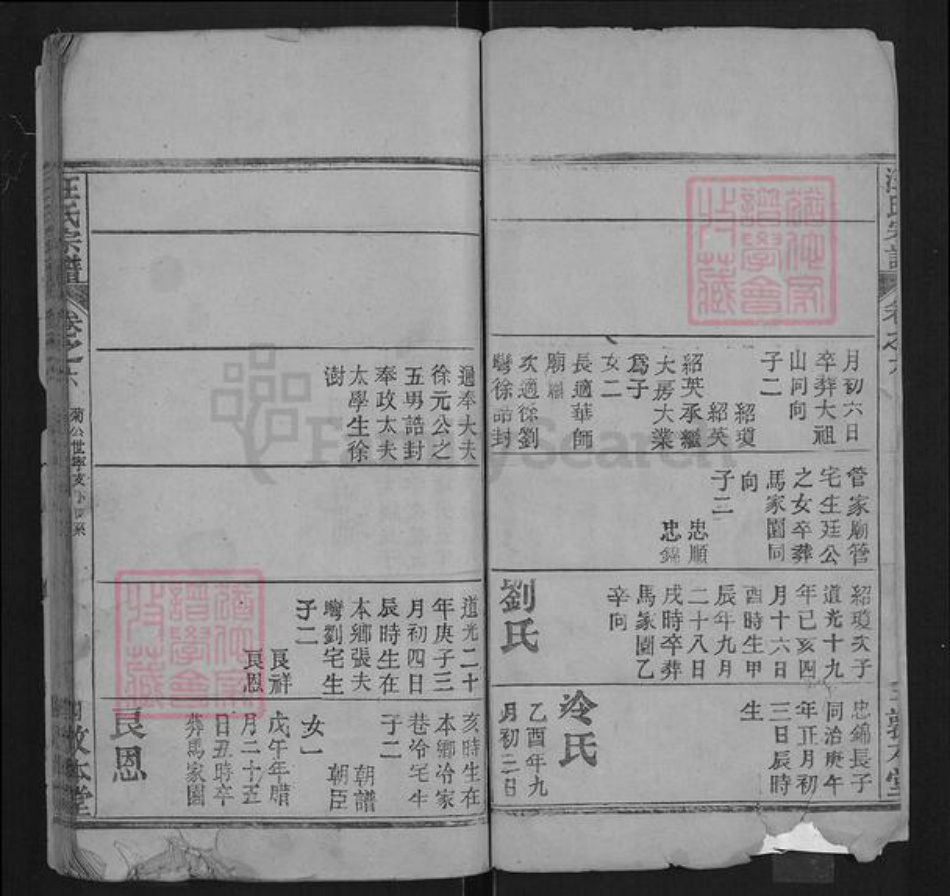 汪氏宗譜
卷之六
敦本堂
月初六日
卒葬大祖
山同向
子二
紹瓊
紹英
紹英承繼
大房大業
爲子
女二
長適華師
廟
次適徐劉
灣徐誥封
管家廟管
宅生廷公
之女卒葬
馬家園同
向
子二
忠順
忠錦
紹瓊次子
道光十九
年己亥四
月十六日
酉時生甲
辰年九月
二十八日
戌時卒葬
馬家園乙
辛向
劉氏
忠錦長子
同治庚午
年正月初
三日辰時
生
冷氏
乙酉年九
月初二日
過奉大夫
徐元公之
五男誥封
奉政大夫
太學生徐
澍
道光二十
年庚子三
月初四日
辰時生在
本鄉張夫
灣劉宅生
子二
良祥
良恩
亥時生在
本鄉冶家
巷冷宅生
子二
朝譜
朝臣
女一
戊午年腊
月二十五
日丑時卒
葬馬家園
良恩
汪氏宗譜
卷之六
敦本堂